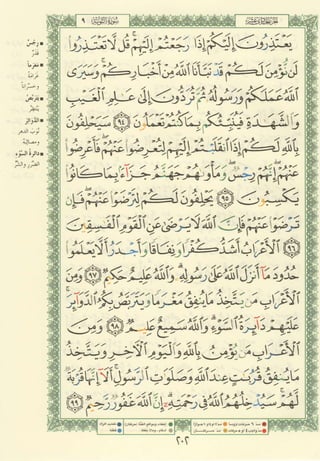 الجزء الحادي عشر
سورة التوبة ٩
يَعْتَذِرُونَ إِلَيْكُمْ إِذَا رَجَعْتُمْ إِلَيْهِمْ قُل لَّا تَعْتَذِرُوا
لَن نُّؤْمِنَ لَكُمْ قَدْ نَبَّأَنَا اللَّهُ مِنْ أَخْبَارِكُمْ وَسَيَرَى
اللَّهُ عَمَلَكُمْ وَرَسُولُهُ ثُمَّ تُرَدُّونَ إِلَى عَالِمِ الْغَيْبِ
وَالشَّهَادَةِ فَيُنَبِّئُكُم بِمَا كُنتُمْ تَعْمَلُونَ ٩٤ سَيَحْلِفُونَ
بِاللَّهِ لَكُمْ إِذَا انقَلَبْتُمْ إِلَيْهِمْ لِتُعْرِضُوا عَنْهُمْ فَأَعْرِضُوا
عَنْهُمْ إِنَّهُمْ رِجْسٌ وَمَأْوَاهُمْ جَهَنَّمُ جَزَاءً بِمَا كَانُوا
يَكْسِبُونَ ٩٥ يَحْلِفُونَ لَكُمْ لِتَرْضَوْا عَنْهُمْ فَإِن
تَرْضَوْا عَنْهُمْ فَإِنَّ اللَّهَ لَا يَرْضَى عَنِ الْقَوْمِ الْفَاسِقِينَ
٩٦ الْأَعْرَابُ أَشَدُّ كُفْرًا وَنِفَاقًا وَأَجْدَرُ أَلَّا يَعْلَمُوا
حُدُودَ مَا أَنزَلَ اللَّهُ عَلَى رَسُولِهِ وَاللَّهُ عَلِيمٌ حَكِيمٌ ٩٧ وَمِنَ
الْأَعْرَابِ مَن يَتَّخِذُ مَا يُنفِقُ مَغْرَمًا وَيَتَرَبَّصُ بِكُمُ الدَّوَائِرَ
عَلَيْهِمْ دَائِرَةُ السَّوْءِ وَاللَّهُ سَمِيعٌ عَلِيمٌ ٩٨ وَمِنَ
الْأَعْرَابِ مَن يُؤْمِنُ بِاللَّهِ وَالْيَوْمِ الْآخِرِ وَيَتَّخِذُ
مَا يُنفِقُ قُرُبَاتٍ عِندَ اللَّهِ وَصَلَوَاتِ الرَّسُولِ أَلَا إِنَّهَا قُرْبَةٌ
لَّهُمْ سَيُدْخِلُهُمُ اللَّهُ فِي رَحْمَتِهِ إِنَّ اللَّهَ غَفُورٌ رَّحِيمٌ ٩٩
رِجْسٌ
قَذَرٌ
مَغْرَمًا
يَتَرَبَّصُ
يَنْتَظِرُ
الدَّوَائِرَ
٢٠٢